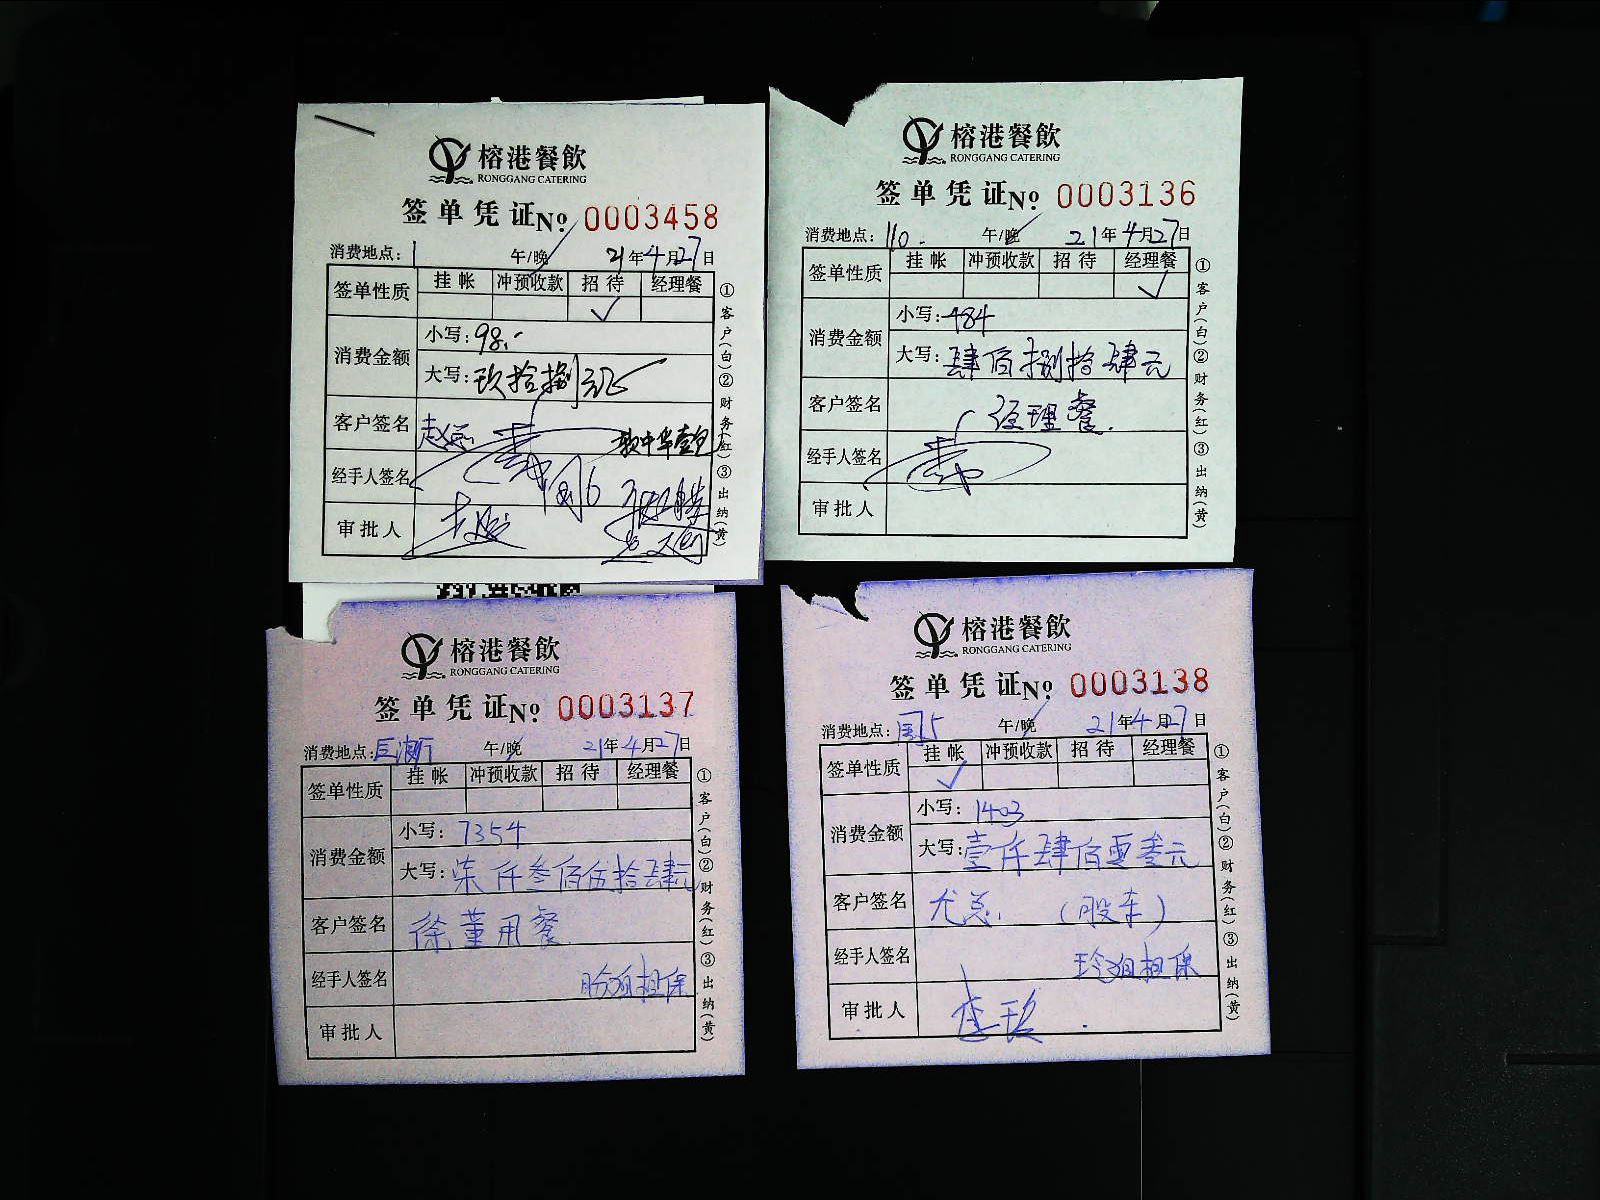 榕港餐飲
RONGGANG CATERING
签单凭证No 0003458
消费地点: 1 午/晚 21年4月27日
签单性质 挂帐 冲预收款 招待 经理餐
✓
消费金额 小写: 98.-
大写: 玖拾捌元正
客户签名 赵总 软中华壹包
经手人签名
审批人
①客户(白)②财务(红)③出纳(黄)
榕港餐飲
RONGGANG CATERING
签单凭证No 0003136
消费地点: 110. 午/晚 21年4月27日
签单性质 挂帐 冲预收款 招待 经理餐
✓
消费金额 小写: 484
大写: 肆佰捌拾肆元
客户签名 经理餐.
经手人签名
审批人
①客户(白)②财务(红)③出纳(黄)
榕港餐飲
RONGGANG CATERING
签单凭证No 0003137
消费地点: 午/晚 21年4月27日
签单性质 挂帐 冲预收款 招待 经理餐
消费金额 小写: 7354
大写: 柒仟叁佰伍拾肆元
客户签名 徐董用餐
经手人签名 担保
审批人
①客户(白)②财务(红)③出纳(黄)
榕港餐飲
RONGGANG CATERING
签单凭证No 0003138
消费地点: 午/晚 21年4月27日
签单性质 挂帐 冲预收款 招待 经理餐
✓
消费金额 小写: 1403
大写: 壹仟肆佰零叁元
客户签名 尤总. (股东)
经手人签名 担保
审批人
①客户(白)②财务(红)③出纳(黄)